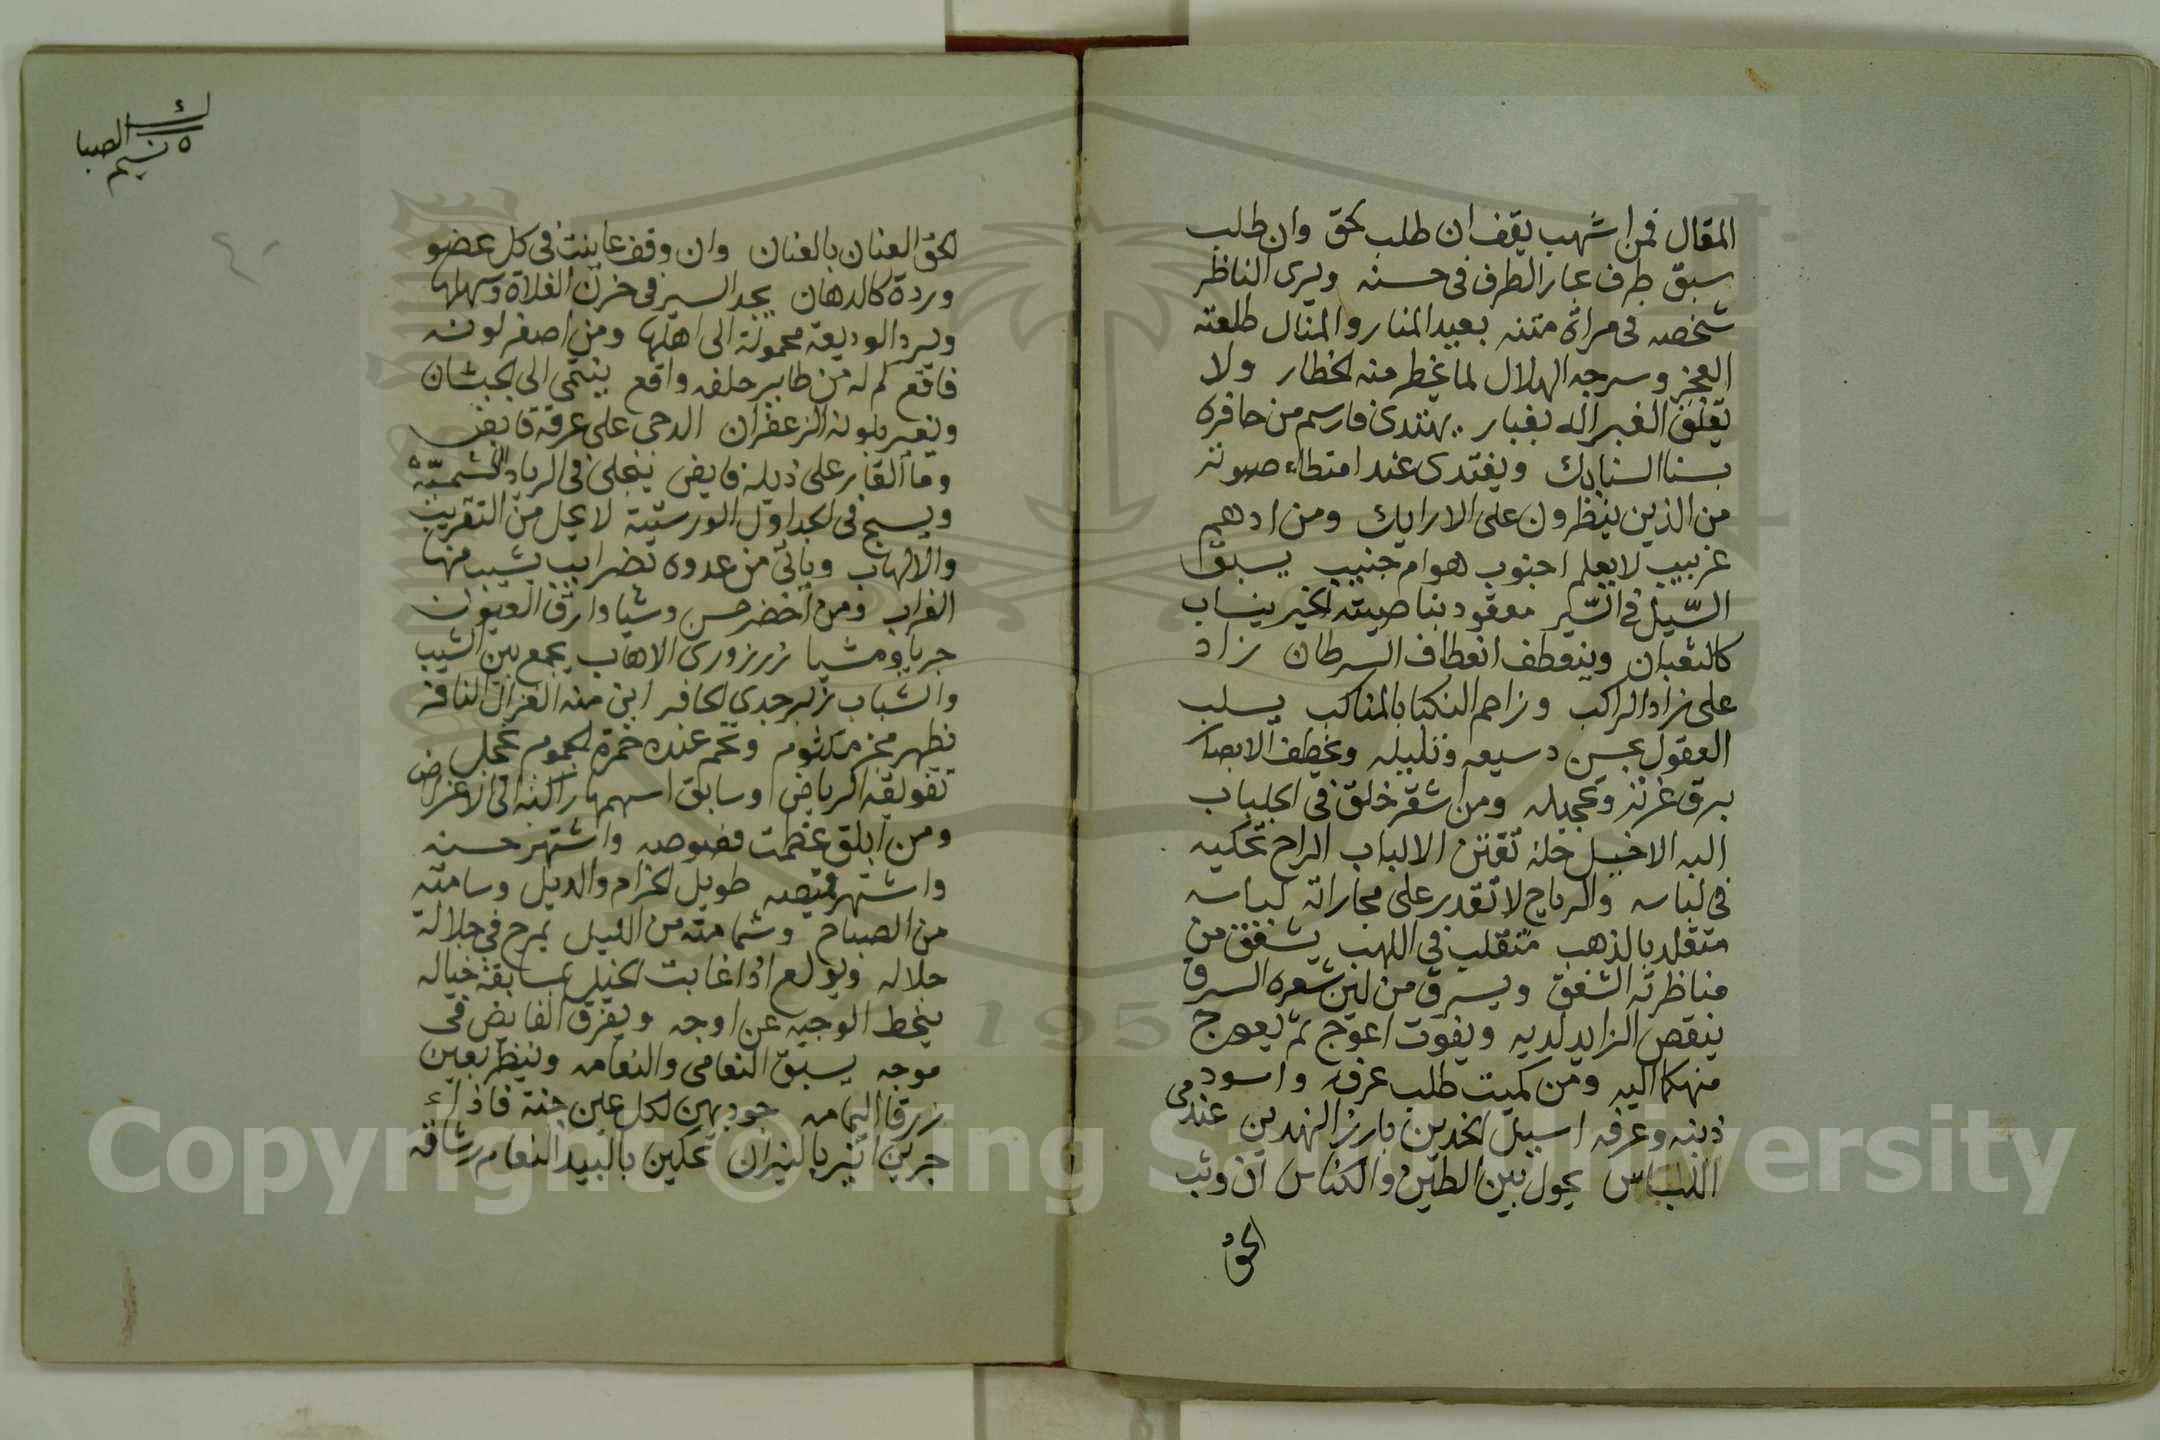 المقال فمن اشهب يقف ان طلب لحق وان طلب
سبق طرف عبار الطرف في حسنه ويرى الناظر
شخصه في مراة متنه بعيد المنار والمنال طلعته
الفجر وسرجه الهلال لما يخطر منه الخطار ولا
تعلق الغبراله بغبار يهتدي فارسم من حافره
بسنا السنابك ويغتدي عند امتطاء صهوته
من الذين ينظرون على الارايك ومن ادهم
غربيب لا يعلم اجنوب هو ام جنيب يسبق
السيل في السير معقود بناصيته الخير ينساب
كالثعبان وينعطف انعطاف السرطان زاد
على زاد الراكب وزاحم النكبا بالمناكب يسلب
العقول بحسن دسيعه وتليله ويخطف الابصار
ببرق غرته وتحجيله ومن اشقر خلق في الجلباب
اليه الاخيل حلة تفتن الالباب الراح تحكيه
في لباسه والرياح لا تقدر على مجاراة لباسه
متقلد بالذهب متقلب في اللهب يشفق من
مناظرته الشفق ويسرق من لين شعره السرق
ينقص الزايد لديه ويفوت اعوج ثم يعوج
منهكما اليه ومن كميت طلب عرفه واسود
ذنبه وعرفه اسيل الخدين بارز النهدين عندمي
اللباس يحول بين الطير والكناس ان وثب
الحق
لحق العنان بالعنان وان وقف عاينت في كل عضو
وردة كالدهان يجد السير في حزن الفلاة وسهلها
ويرد الوديعة محمولة الى اهلها ومن اصفر لونه
فاقع كم له من طاير حلفه واقع ينتمي الى الحبشان
ويغير بلونه الزعفران الدجى على عرفه قابض
وما القار على ذيله فايض ينجلي في الرياد الشمسية
ويسبح في الجداول الورسية لا يحل من التقريب
والالهاب وياتي من عدوه بضرايب يشيب منها
الغراب ومن اخضر حسن وشيا وارق العيون
جريا ومشيا زرزوري الاهاب يجمع بين الشيب
والشباب زبرجدي الحافر اين منه الغزال النافر
نظهر مخزمكثوم وتحم عنده خمرة الجموم تخجل
تفويقه الرياض وسابق اسهمها راكبه الى الاغراض
ومن ابلق عظمت فصوصه واشتهر حسنه
واشتهر قميصه طويل الحزام والذيل وسامته
من الصباح وشمامته من الليل يمرح في جلالة
جلاله ويولع اذا غابت الخيل بمسابقة خياله
ينحط الوجيه عن اوجه ويغرق الفايض في
موجه يسبق النعامى والنعامه وينظر بعين
زرقا اليمامه جود بهين لكل عين جنة فاذا
جرين اتين بالنيران تحكين بالبيد النعام رشاقة
نسيم الصبا